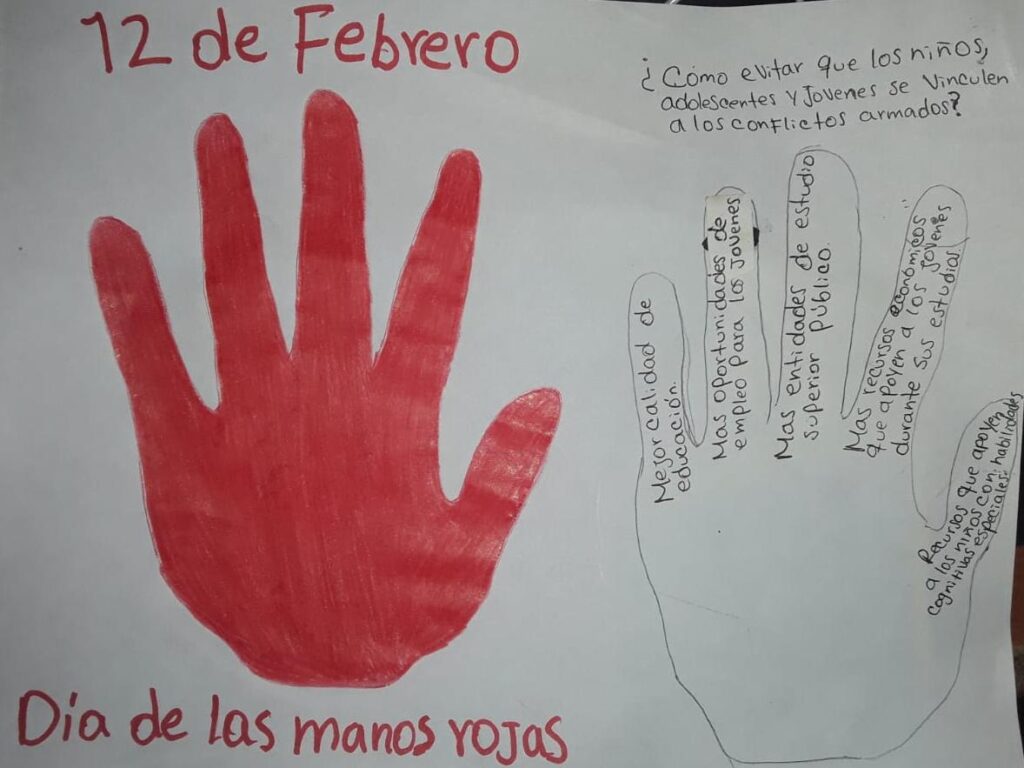 12 de Febrero
¿Cómo evitar que los niños,
adolescentes y Jovenes se vinculen
a los conflictos armados?
Mejor calidad de
educación.
Mas oportunidades de
empleo para los Jovenes
Mas entidades de estudio
superior público.
Mas recursos económicos
que apoyen a los jovenes
durante sus estudios.
Recursos que apoyen
a los niños con habilidades
cognitivas especiales.
Día de las manos rojas